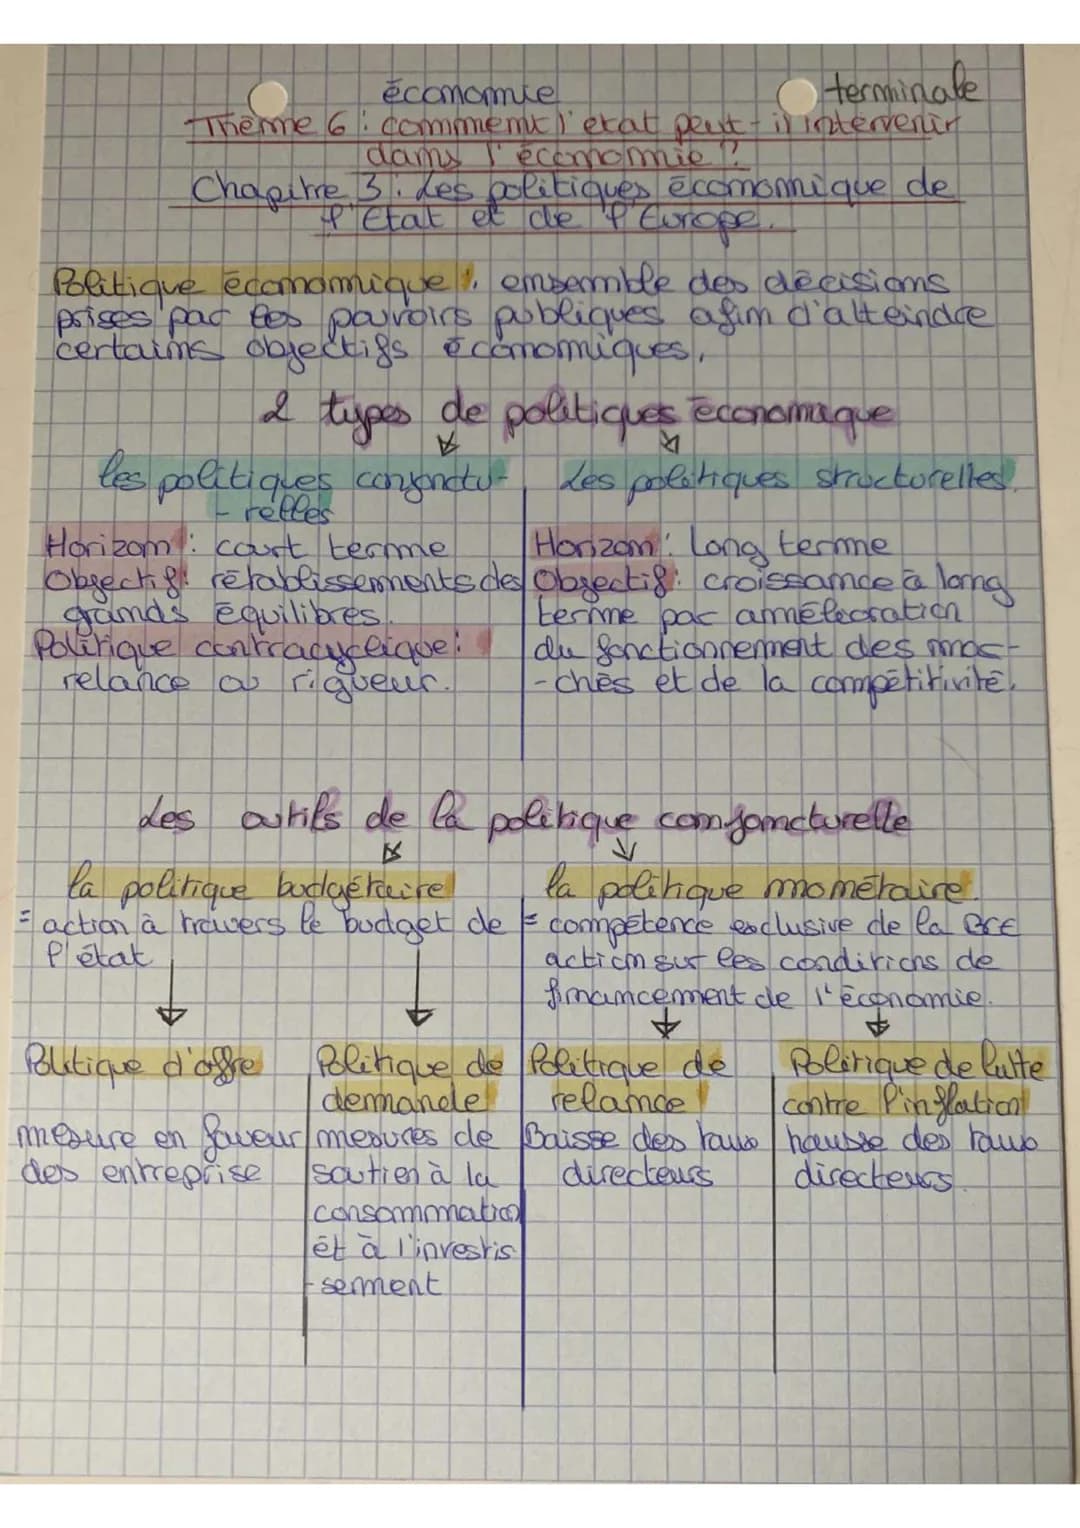 économie
terminale
Thème 6 : comment l'état peut-il intervenir
dans l'économie ?
Chapitre 3 : Les politiques économique de
l'Etat et de l'Europe.
Politique économique : ensemble des décisions
prises par les pouvoirs publiques afin d'atteindre
certains objectifs économiques.
2 types de politiques économique
les politiques conjonctu-
-relles
Horizon : court terme
Objectif : rétablissements des
grands équilibres.
Politique contracyclique :
relance ou rigueur.
Les politiques structurelles.
Horizon : long terme
Objectif : croissance à long
terme par amméleoration
du fonctionnement des mar-
-chés et de la compétitivité.
Les outils de la politique conjoncturelle
la politique budgétaire
= action à travers le budget de
l'état
la politique monétaire.
= compétence exclusive de la BCE
action sur les conditions de
financement de l'économie.
Politique d'offre
mesure en faveur
des entreprise
Politique de
demande
mesures de
soutien à la
consommation
et à l'investis
-sement
Politique de
relance
Baisse des taux
directeurs
Politique de lutte
contre l'inflation
hausse des taux
directeurs.